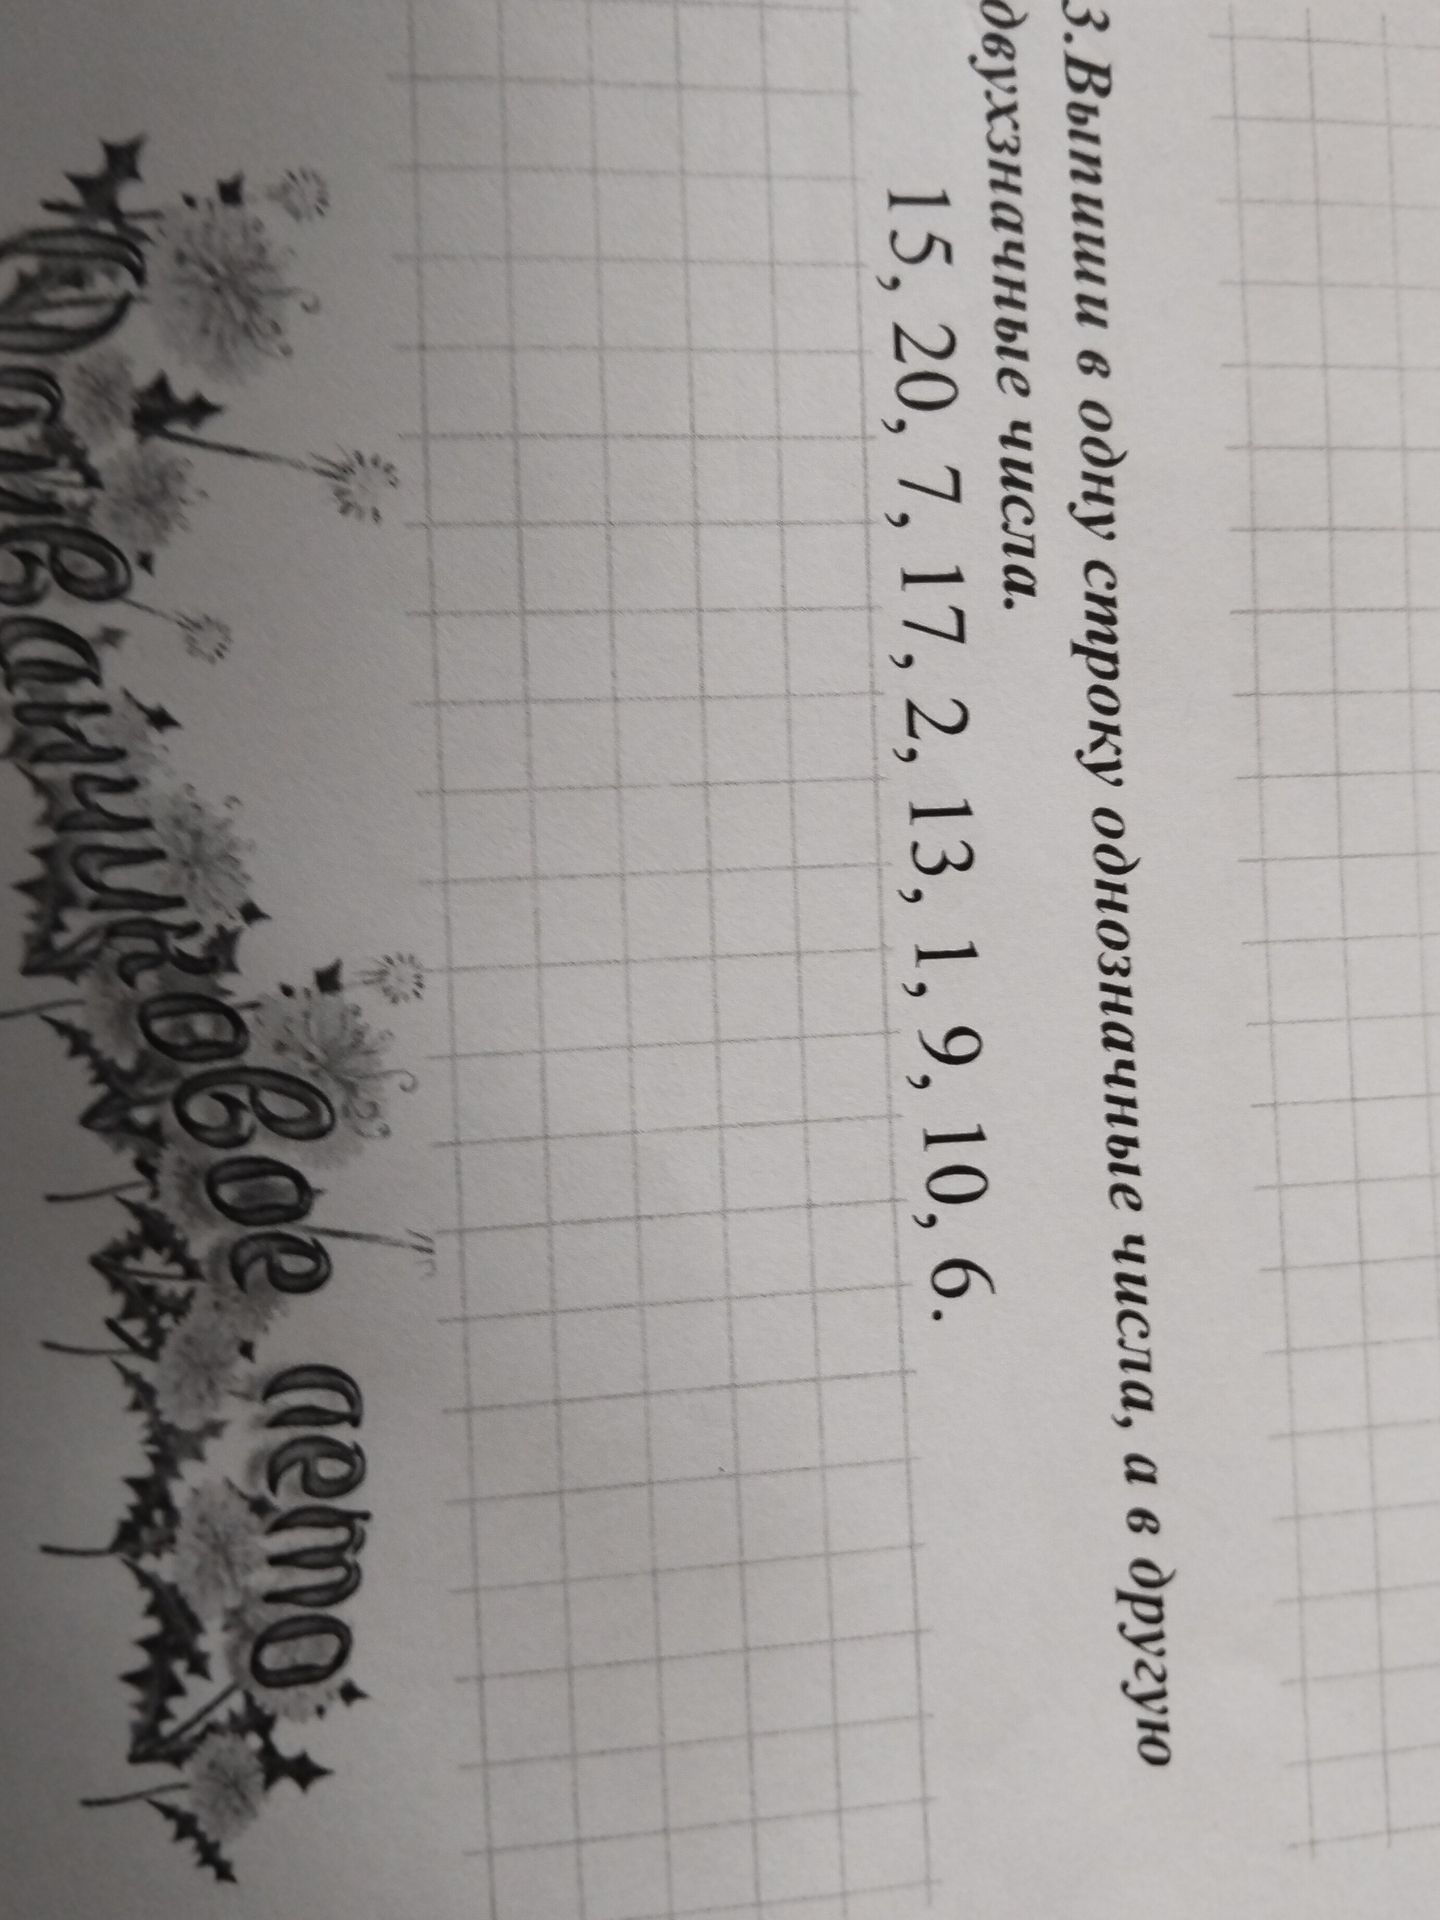 3.Выпиши в одну строку однозначные числа, а в другую
двухзначные числа.
15, 20, 7, 17, 2, 13, 1, 9, 10, 6.
Одуванчиковое лето